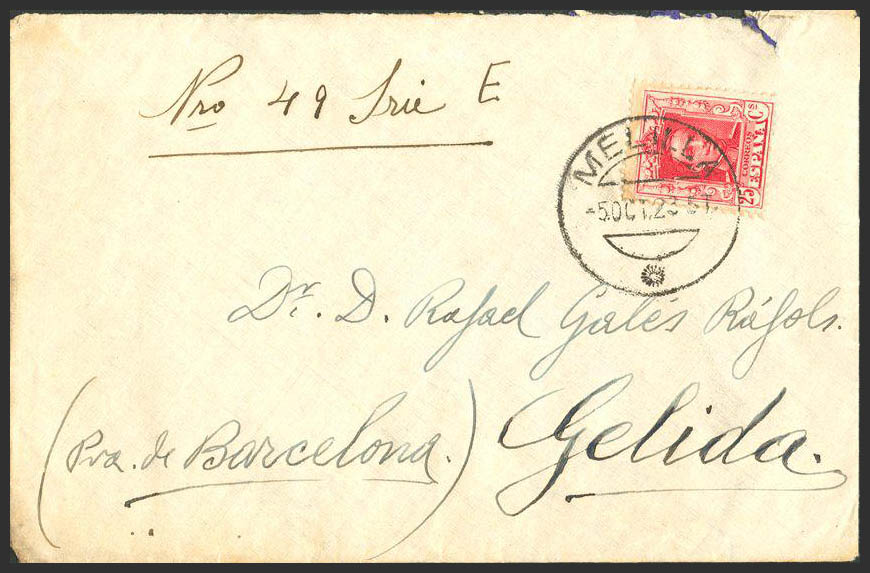 Nro 49 Srie E
25 Cs
CORREOS
ESPAÑA
MELILLA
-5.OCT.23
Dr. D. Rafael Galés Ráfols.
(Pva. de Barcelona.)
Gelida.